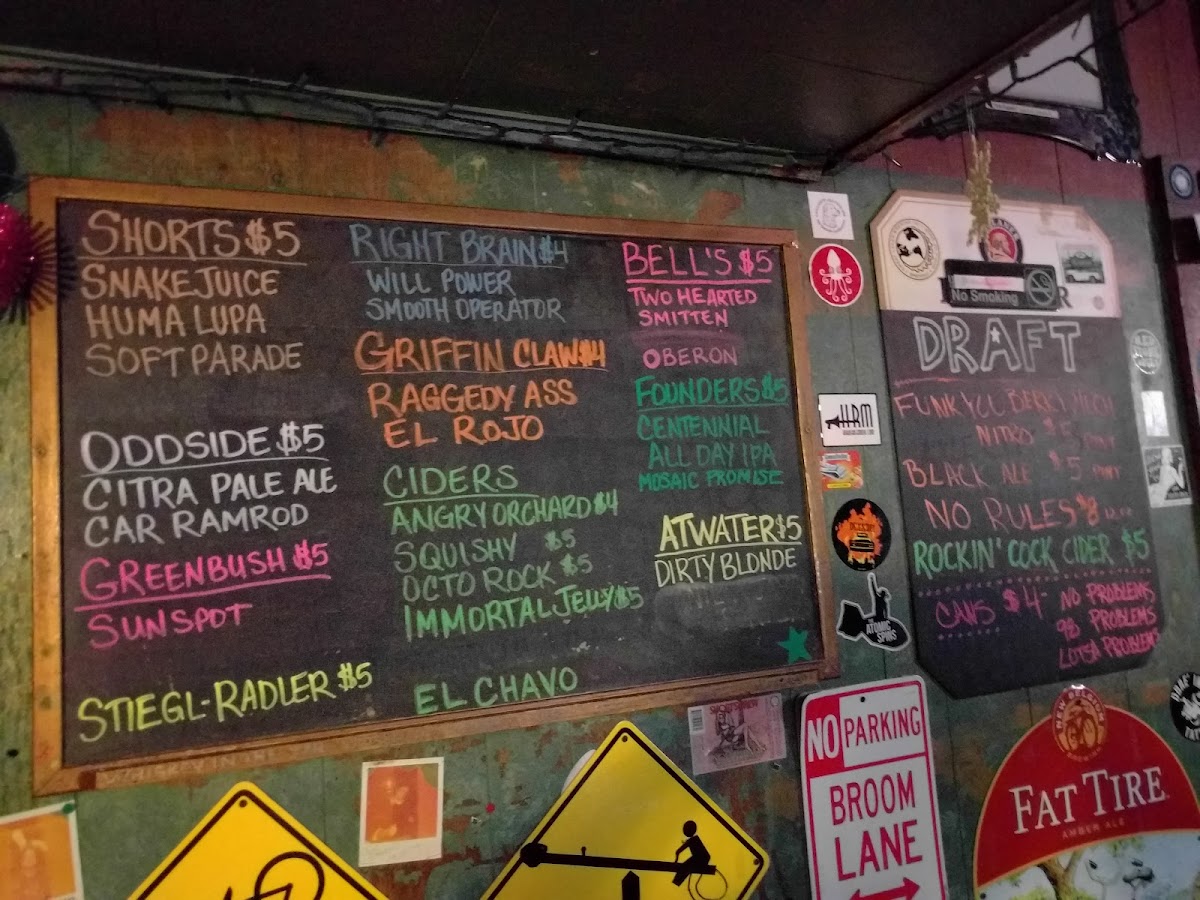 SHORTS $5
SNAKE JUICE
HUMA LUPA
SOFT PARADE
ODDSIDE $5
CITRA PALE ALE
CAR RAMROD
GREENBUSH $5
SUNSPOT
STIEGL-RADLER $5
RIGHT BRAIN $4
WILL POWER
SMOOTH OPERATOR
GRIFFIN CLAW $4
RAGGEDY ASS
EL ROJO
CIDERS
ANGRY ORCHARD $4
SQUISHY $5
OCTO ROCK $5
IMMORTAL JELLY $5
EL CHAVO
BELL'S $5
TWO HEARTED
SMITTEN
OBERON
FOUNDERS $5
CENTENNIAL
ALL DAY IPA
MOSAIC PROMISE
ATWATER $5
DIRTY BLONDE
HRM
THE
ATOMIC
SPINS
No Smoking
DRAFT
FUNK YOU BERRY
NITRO $5
BLACK ALE $5
NO RULES $8
ROCKIN' COCK CIDER $5
CANS $4- NO PROBLEMS
98 PROBLEMS
LOTSA PROBLEMS
NO PARKING
BROOM
LANE
NEW BELGIUM
FAT TIRE
AMBER ALE